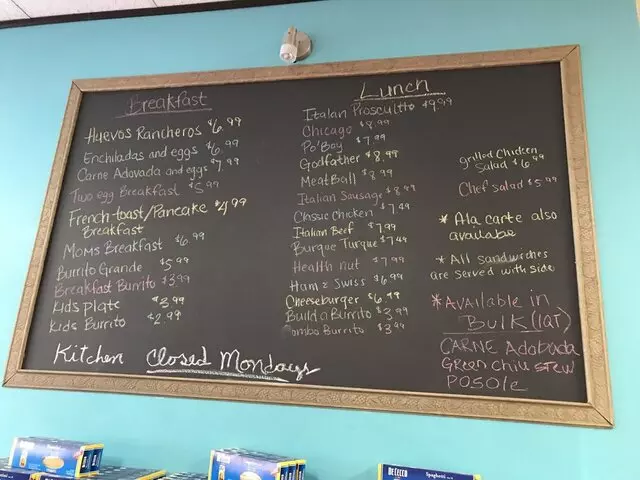 Breakfast
Huevos Rancheros $6.99
Enchiladas and eggs $6.99
Carne Adovada and eggs $7.99
Two egg Breakfast $5.99
French toast/Pancake $4.99
Breakfast
Moms Breakfast $6.99
Burrito Grande $5.99
Breakfast Burrito $3.99
Kids plate $3.99
Kids Burrito $2.99
Kitchen Closed Mondays
Lunch
Italan Prosciutto $9.99
Chicago $8.99
Po'Boy $7.99
Godfather $8.99
MeatBall $8.99
Italian Sausage $8.99
Classic Chicken $7.49
Italian Beef $7.99
Burque Turque $7.49
Health nut $7.99
Ham & Swiss $6.99
Cheeseburger $6.99
Build a Burrito $3.99
Combo Burrito $3.99
grilled Chicken
Salad $6.99
Chef salad $5.99
* Ala carte also
available
* All sandwiches
are served with side
*Available in
Bulk (1QT)
CARNE Adobada
Green chili stew
POSOLE
DE CECCO
Spaghetti